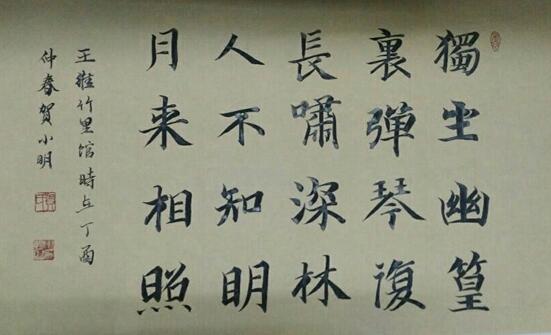 獨坐幽篁
裏彈琴復
長嘯深林
人不知明
月来相照
王維竹里馆時在丁酉
仲春賀小明